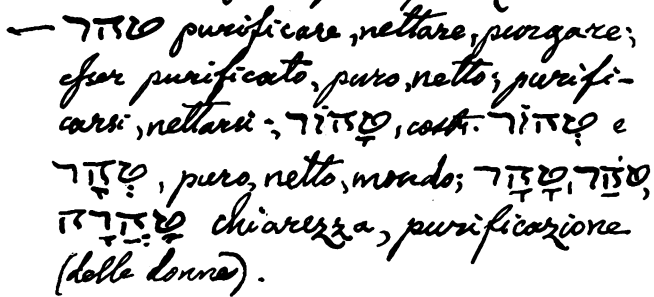 — טהר purificare, nettare, purgare;
esser purificato, puro, netto; purifi-
carsi, nettarsi -; טָהוֹר, costr. טְהוֹר e
טְהָר, puro, netto, mondo; טָהָר, טֹהַר,
טָהֳרָה chiarezza, purificazione
(delle donne).